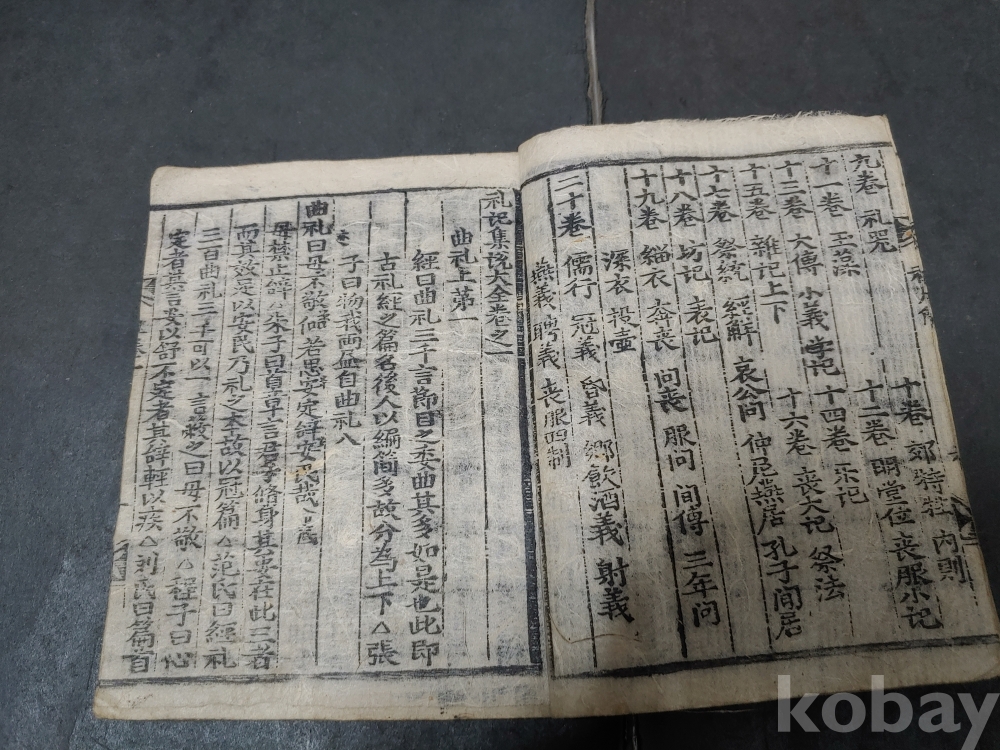 九卷 礼器 十卷 郊特牲 内則
十一卷 玉藻 十二卷 明堂位 丧服小记
十三卷 大傳 小義 学記 十四卷 乐记
十五卷 雜记上下 十六卷 丧大记 祭法
十七卷 祭統 經解 哀公问 仲尼燕居 孔子间居
十八卷 坊记 表记
十九卷 緇衣 奔丧 问丧 服问 间傳 三年问
深衣 投壺
二十卷 儒行 冠義 昏義 鄉飲酒義 射義
燕義 聘義 丧服四制
礼记集說大全卷之一
曲礼上第一
經曰曲礼三千言節目之委曲其多如是也此即
古礼經之篇名後人以編简多故分為上下△張
子曰物我两尽自曲礼入
曲礼曰毋不敬儼若思安定辞安民哉
毋禁止辞△朱子曰首章言君子修身其要在此三者
而其效足以安民乃礼之本故以冠篇△范氏曰經礼
三百曲礼三千可以一言蔽之曰毋不敬△程子曰心
定者其言安以舒不定者其辞輕以疾△刘氏曰篇首
kobay